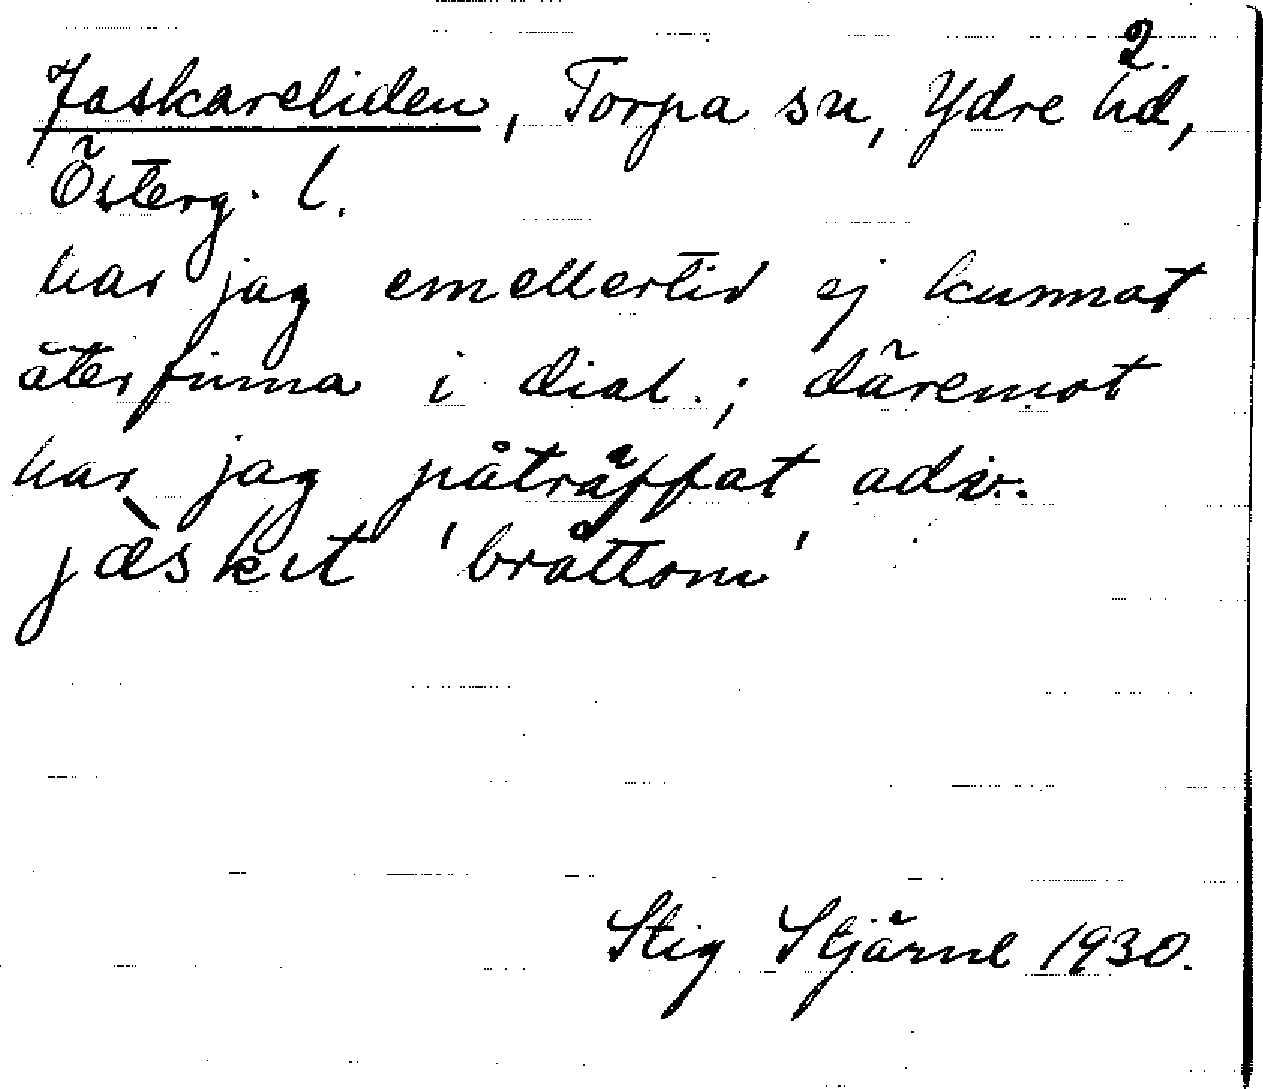 2.
Jaskareliden, Torpa sn, Ydre hd,
Österg. l.
har jag emellertid ej kunnat
återfinna i dial.; däremot
har jag påträffat adv.
jæ̀skıt 'bråttom'
Stig Stjärne 1930.